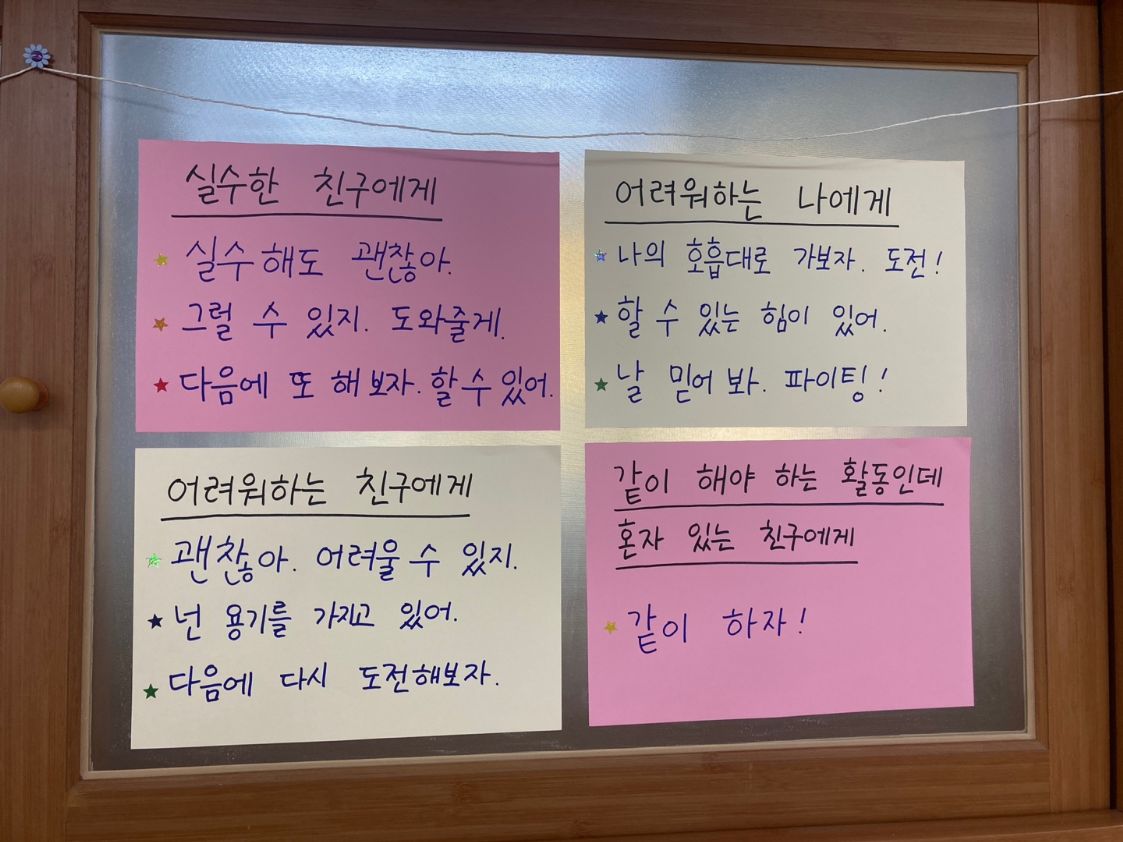 실수한 친구에게
실수해도 괜찮아.
그럴 수 있지. 도와줄게.
다음에 또 해보자. 할 수 있어.
어려워하는 나에게
나의 호흡대로 가보자. 도전!
할 수 있는 힘이 있어.
날 믿어 봐. 파이팅!
어려워하는 친구에게
괜찮아. 어려울 수 있지.
넌 용기를 가지고 있어.
다음에 다시 도전해보자.
같이 해야 하는 활동인데
혼자 있는 친구에게
같이 하자!